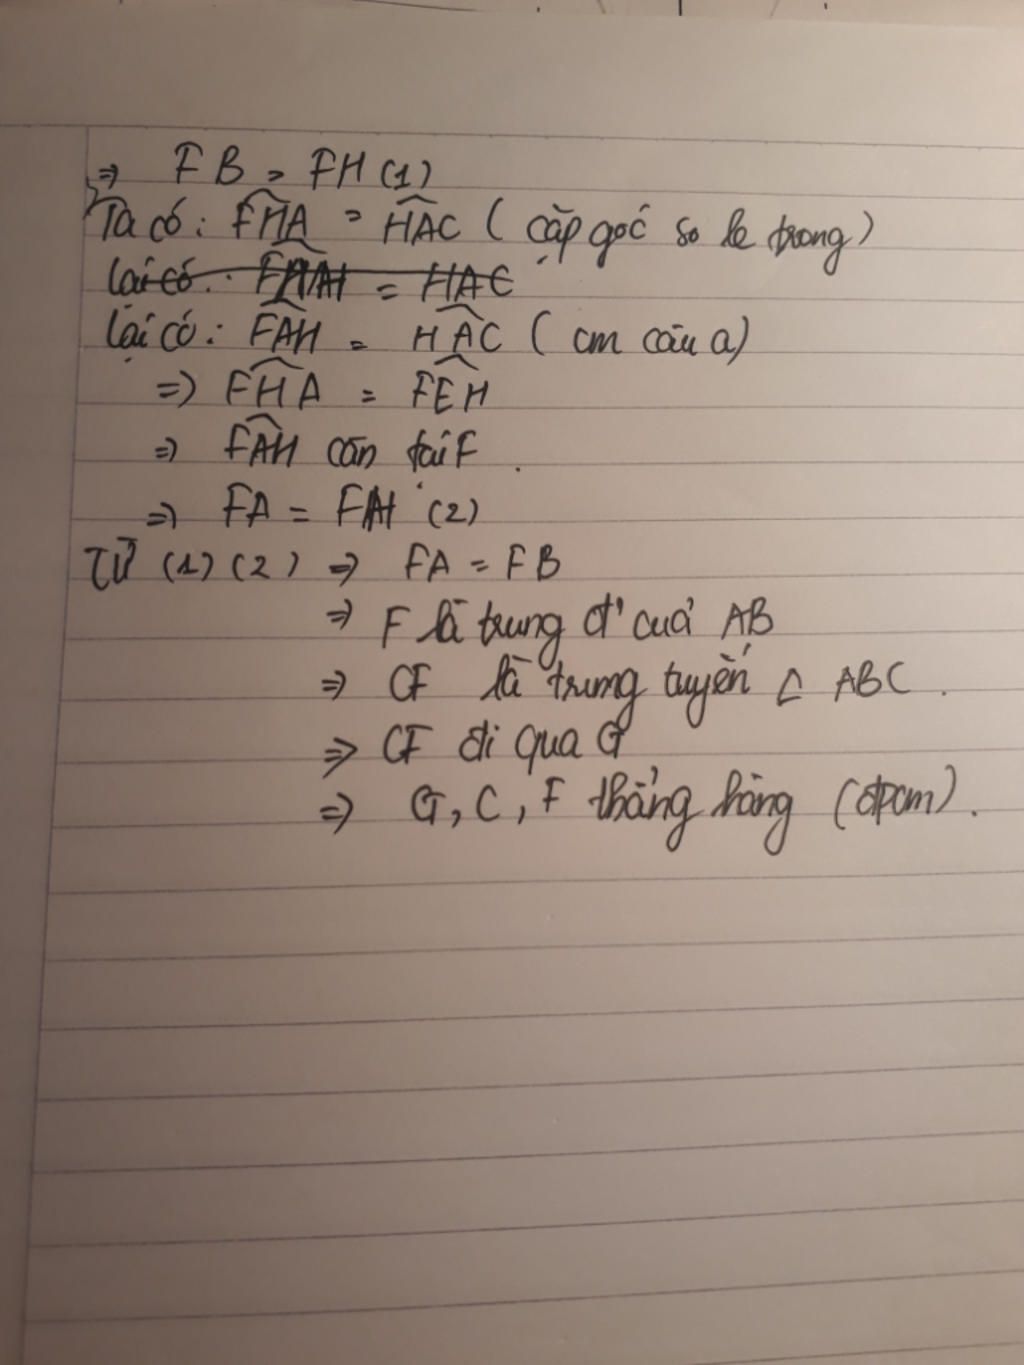 => FB = FH (1)
Ta có: FHA = HAC (cặp góc so le trong)
lại có: FAH = HAC
lại có: FAH = HAC (cm câu a)
=> FHA = FEH
=> FAH cân tại F.
=> FA = FH (2)
Từ (1) (2) => FA = FB
=> F là trung đ' của AB
=> CF là trung tuyến △ ABC.
=> CF đi qua G
=> G, C, F thẳng hàng (đpcm).